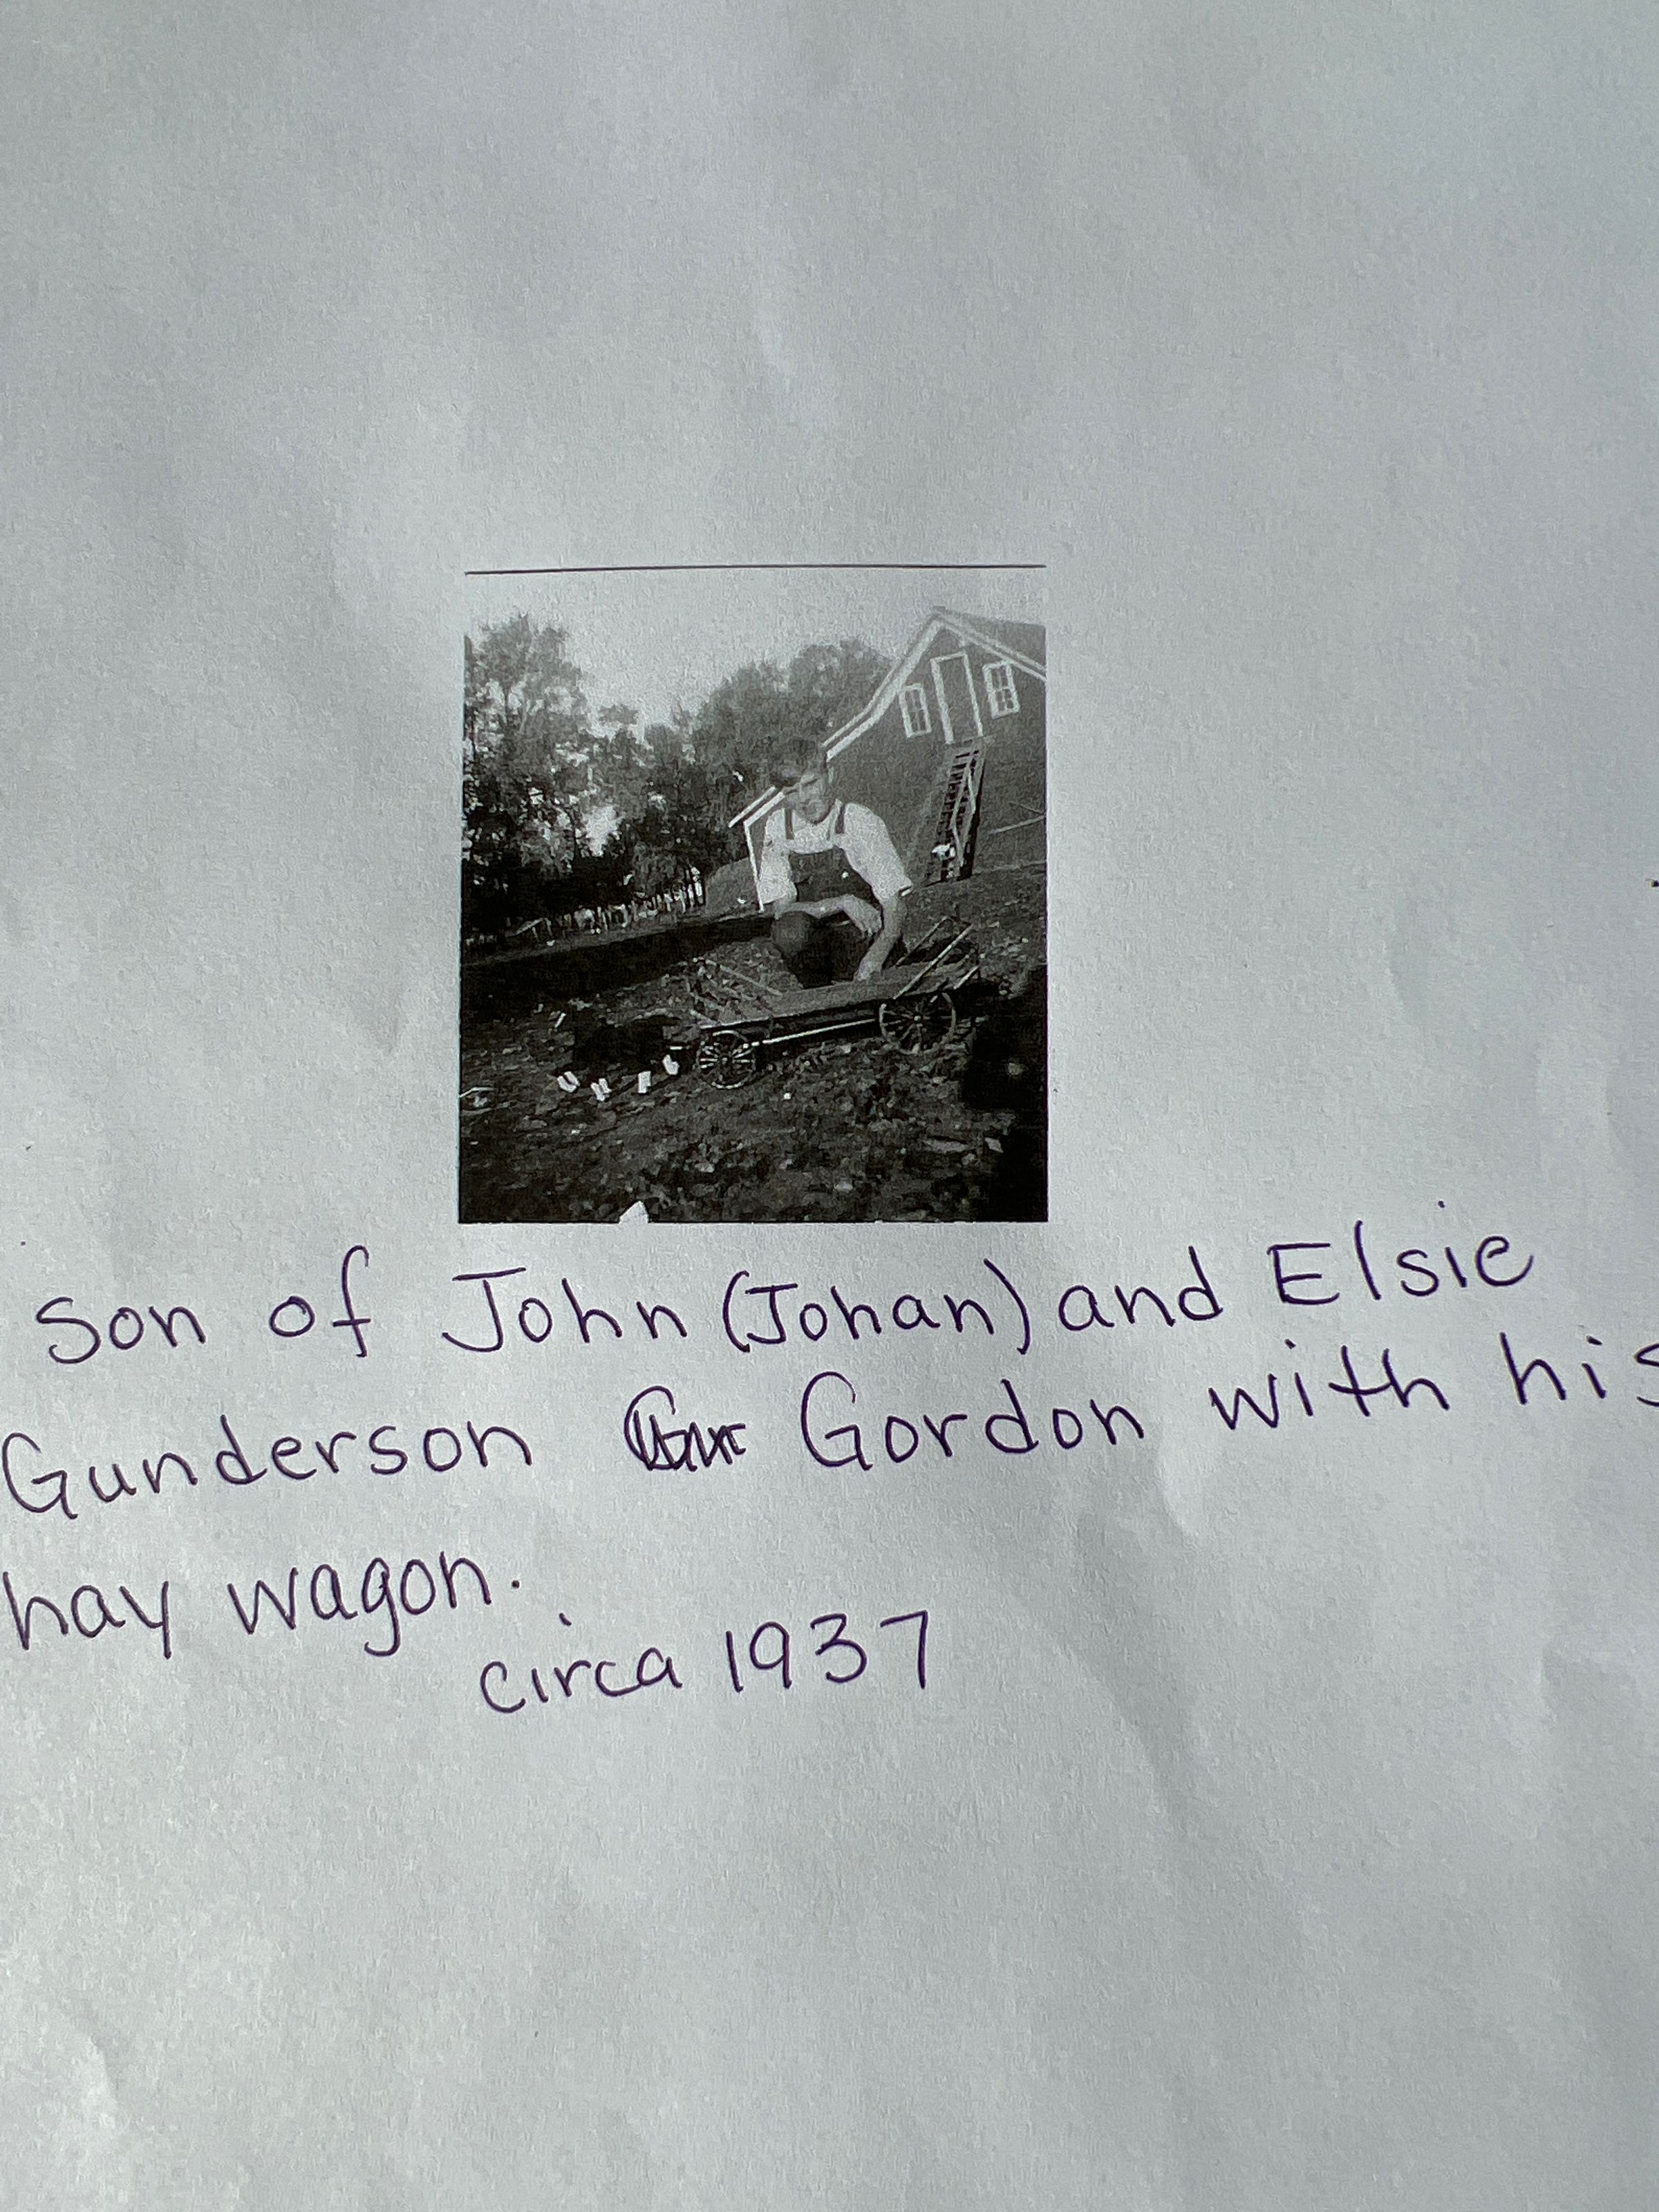 son of John (Johan) and Elsie
Gunderson Gordon with his
hay wagon.
circa 1937